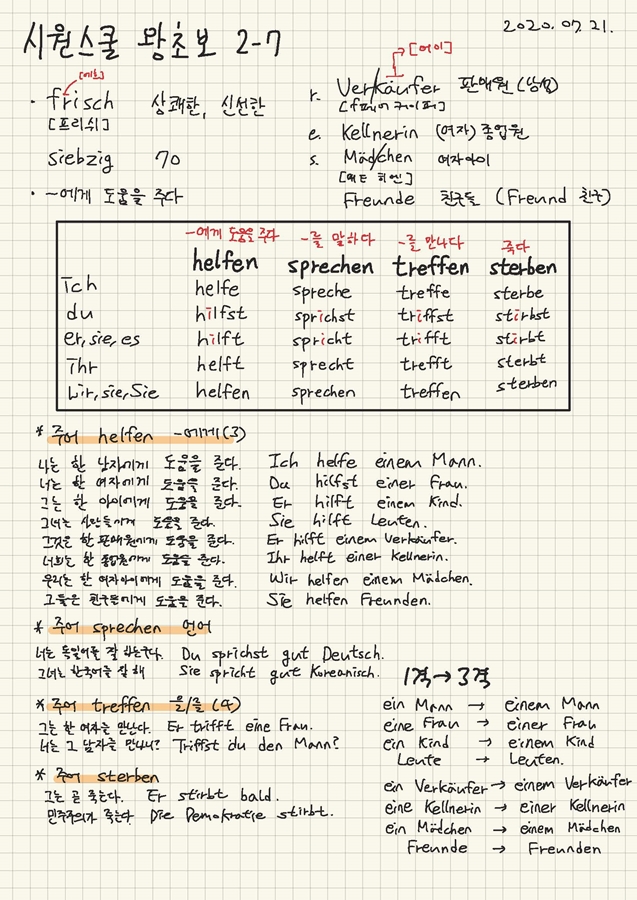 시원스쿨 왕초보 2-7
2020. 07. 21.
[에흐]
· frisch 상쾌한, 신선한
[프리쉬]
siebzig 70
· ~에게 도움을 주다
[어이]
r. Ver/käufer 판매원 (남성)
e. Kellnerin (여자) 종업원
s. Mäd/chen 여자아이
Freunde 친구들 (Freund 친구)
-에게 도움을 주다 -를 말하다 -를 만나다 죽다
helfen sprechen treffen sterben
ich helfe spreche treffe sterbe
du hilfst sprichst triffst stirbst
er, sie, es hilft spricht trifft stirbt
ihr helft sprecht trefft sterbt
wir, sie, Sie helfen sprechen treffen sterben
* 주어 helfen -에게(3)
나는 한 남자에게 도움을 준다. Ich helfe einem Mann.
너는 한 여자에게 도움을 준다. Du hilfst einer Frau.
그는 한 아이에게 도움을 준다. Er hilft einem Kind.
그녀는 사람들에게 도움을 준다. Sie hilft Leuten.
그것은 한 판매원에게 도움을 준다. Er hilft einem Verkäufer.
너희는 한 종업원에게 도움을 준다. Ihr helft einer Kellnerin.
우리는 한 여자아이에게 도움을 준다. Wir helfen einem Mädchen.
그들은 친구들에게 도움을 준다. Sie helfen Freunden.
* 주어 sprechen 언어
너는 독일어를 잘 하는구나. Du sprichst gut Deutsch.
그녀는 한국어를 잘 해 Sie spricht gut Koreanisch.
* 주어 treffen 을/를 (4)
그는 한 여자를 만난다. Er trifft eine Frau.
너는 그 남자를 만나니? Triffst du den Mann?
* 주어 sterben
그는 곧 죽는다. Er stirbt bald.
민주주의가 죽는다. Die Demokratie stirbt.
1격→3격
ein Mann → einem Mann
eine Frau → einer Frau
ein Kind → einem Kind
Leute → Leuten.
ein Verkäufer → einem Verkäufer
eine Kellnerin → einer Kellnerin
ein Mädchen → einem Mädchen
Freunde → Freunden